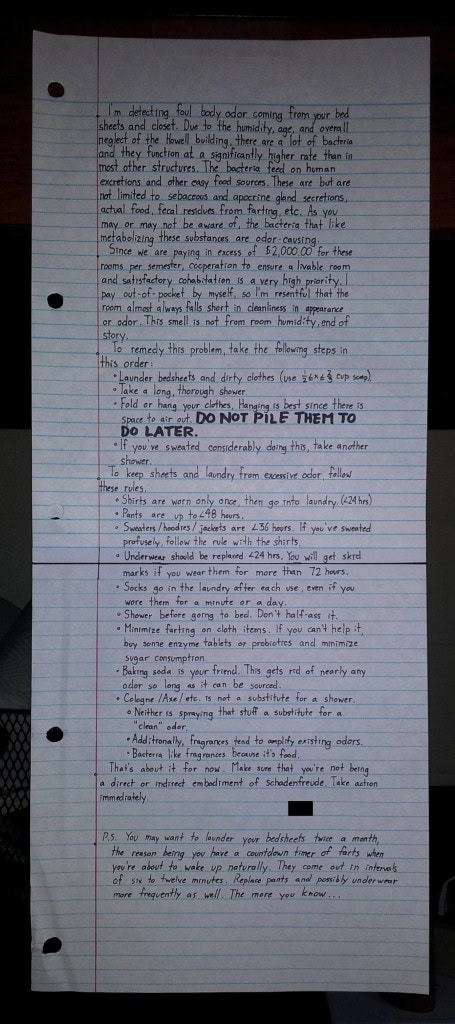 I'm detecting foul body odor coming from your bed
sheets and closet. Due to the humidity, age, and overall
neglect of the Howell building, there are a lot of bacteria
and they function at a significantly higher rate than in
most other structures. The bacteria feed on human
excretions and other easy food sources. These are but are
not limited to sebaceous and apocrine gland secretions,
actual food, fecal residues from farting, etc. As you
may or may not be aware of, the bacteria that like
metabolizing these substances are odor-causing.
Since we are paying in excess of $2,000.00 for these
rooms per semester, cooperation to ensure a livable room
and satisfactory cohabitation is a very high priority. I
pay out-of-pocket by myself, so I'm resentful that the
room almost always falls short in cleanliness in appearance
or odor. This smell is not from room humidity, end of
story.
To remedy this problem, take the following steps in
this order:
• Launder bedsheets and dirty clothes (use ½≤x≤⅔ cup soap).
• Take a long, thorough shower.
• Fold or hang your clothes, Hanging is best since there is
space to air out. DO NOT PILE THEM TO
DO LATER.
• If you've sweated considerably doing this, take another
shower.
To keep sheets and laundry from excessive odor, follow
these rules.
• Shirts are worn only once, then go into laundry. (<24 hrs)
• Pants are up to <48 hours.
• Sweaters/hoodies/jackets are <36 hours. If you've sweated
profusely, follow the rule with the shirts.
• Underwear should be replaced <24 hrs. You will get skid
marks if you wear them for more than 72 hours.
• Socks go in the laundry after each use, even if you
wore them for a minute or a day.
• Shower before going to bed. Don't half-ass it.
• Minimize farting on cloth items. If you can't help it,
buy some enzyme tablets or probiotics and minimize
sugar consumption.
• Baking soda is your friend. This gets rid of nearly any
odor so long as it can be sourced.
• Cologne/Axe/etc. is not a substitute for a shower.
• Neither is spraying that stuff a substitute for a
"clean" odor.
• Additionally, fragrances tend to amplify existing odors.
• Bacteria like fragrances because it's food.
That's about it for now. Make sure that you're not being
a direct or indirect embodiment of schadenfreude. Take action
immediately.
P.S. You may want to launder your bedsheets twice a month,
the reason being you have a countdown timer of farts when
you're about to wake up naturally. They come out in intervals
of six to twelve minutes. Replace pants and possibly underwear
more frequently as well. The more you know...